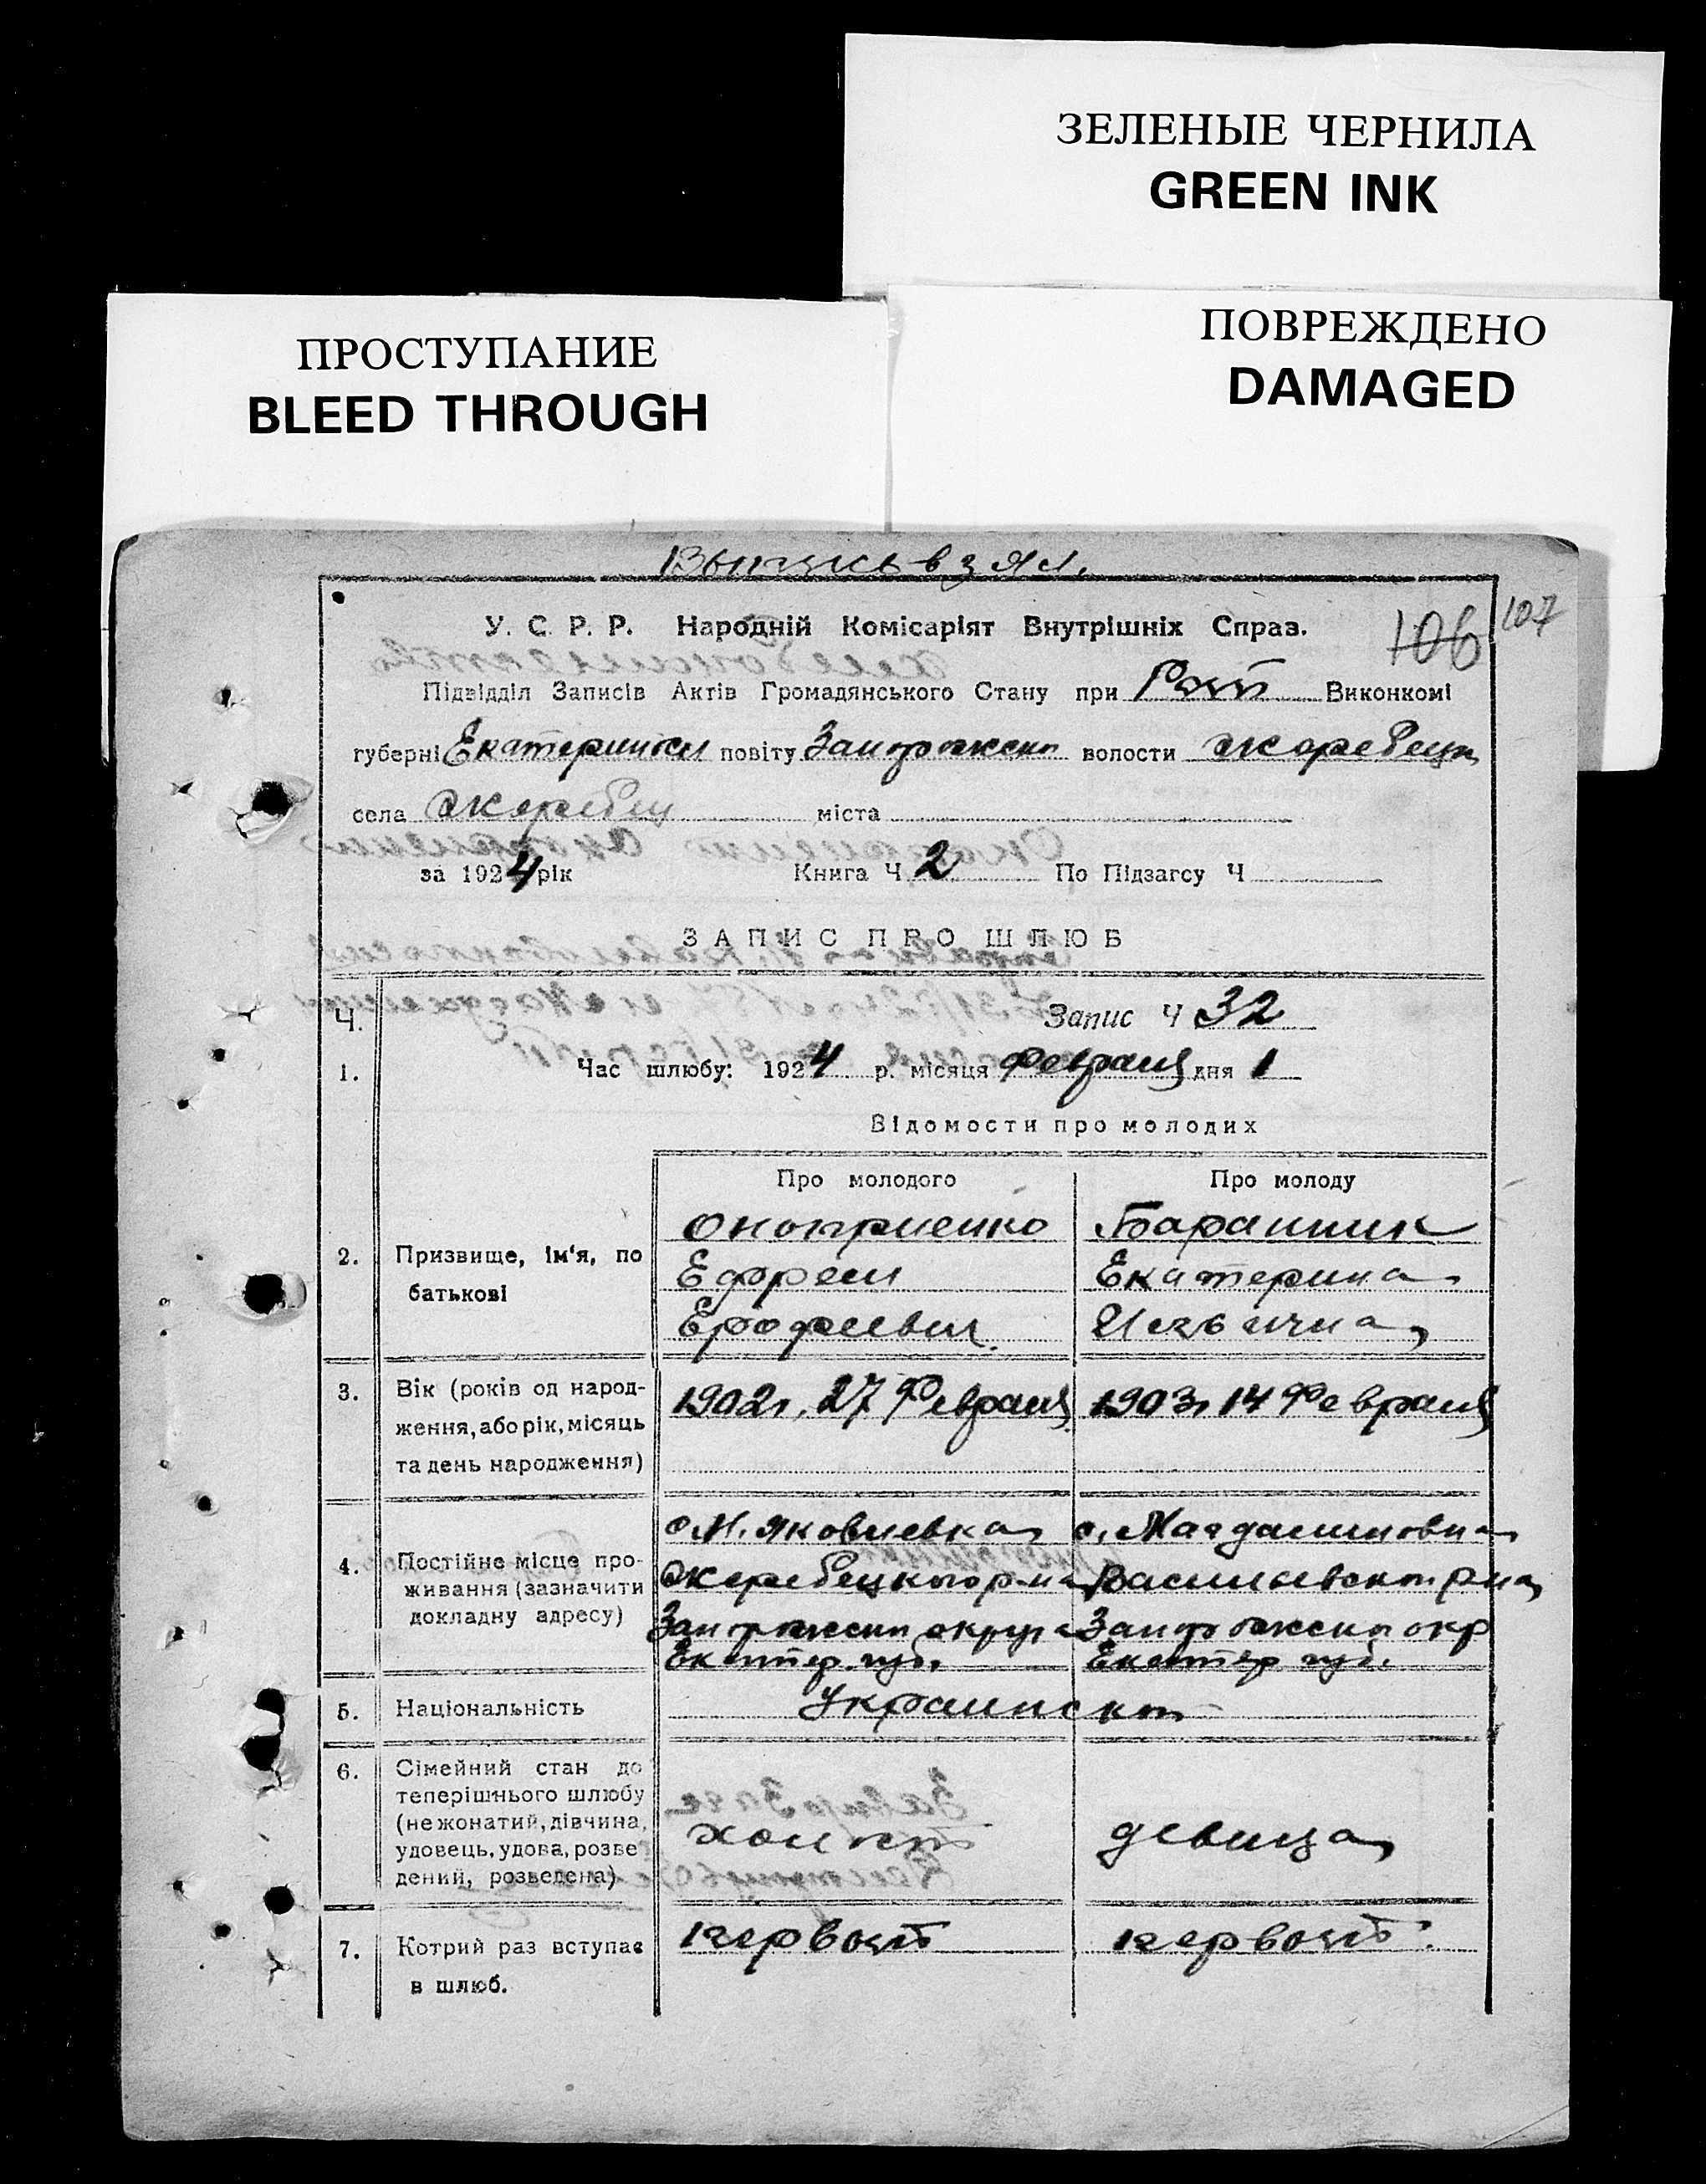 ЗЕЛЕНЫЕ ЧЕРНИЛА
GREEN INK
ПОВРЕЖДЕНО
DAMAGED
ПРОСТУПАНИЕ
BLEED THROUGH
Выпись взял.
У. С. Р. Р. Народній Комісаріят Внутрішніх Спраз.
106 107
Підвідділ Записів Актів Громадянського Стану при Виконкомі
губерні Екатериносл повіту Запорожско волости Жеребецк
села Жеребец міста
за 1924 рік Книга Ч. 2 По Підзагсу Ч
ЗАПИС ПРО ШЛЮБ
Ч. Запис Ч 32
1. Час шлюбу: 1924 р. місяця Февраля дня 1
Відомости про молодих
Про молодого Про молоду
Оноприенко Баранник
2. Призвище, ім'я, по батькові
Ефрем Екатерина
Ерофеевич. Ильична
3. Вік (років од народ-
ження, або рік, місяць
та день народження)
1902г. 27 Февраля 1903г 14 Февраля
4. Постійне місце про-
живання (зазначити
докладну адресу)
с М. Яковлевка с. Магдалиновка
Жеребецкого р-на Васильевского р-на
Запорожской округа Запорожской окр
Екатер. губ. Екатер губ.
5. Національність Украинской
6. Сімейний стан до
теперішнього шлюбу
(нежонатий, дівчина,
удовець, удова, розве
дений, розведена)
холост девица
7. Котрий раз вступає
в шлюб.
первый первый.